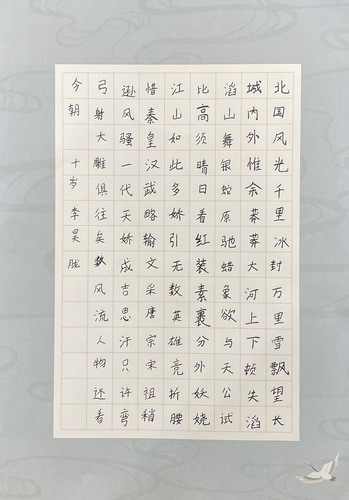 北国风光千里冰封万里雪飘望长
城内外惟余莽莽大河上下顿失滔
滔山舞银蛇原驰蜡象欲与天公试
比高须晴日看红装素裹分外妖娆
江山如此多娇引无数英雄竞折腰
惜秦皇汉武略输文采唐宗宋祖稍
逊风骚一代天娇成吉思汗只许弯
弓射大雕俱往矣数风流人物还看
今朝 十岁 李昊